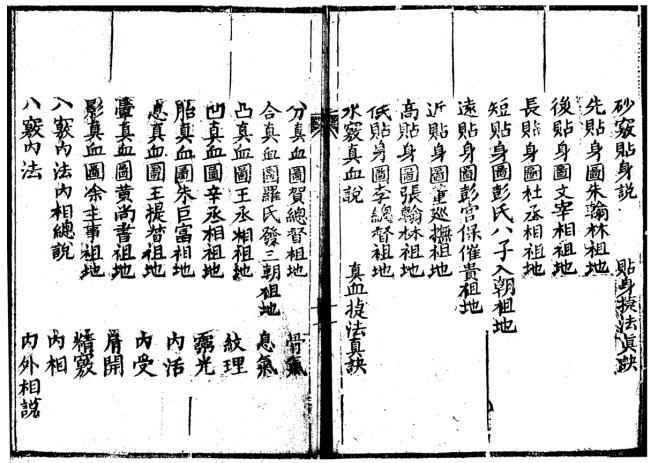 砂竅貼身說 貼身捷法真訣
先貼身圖朱翰林祖地
後貼身圖文宰相祖地
長貼身圖杜丞相祖地
短貼身圖彭氏八子入朝祖地
遠貼身圖彭宮保催貴祖地
近貼身圖董巡撫祖地
高貼身圖張翰林祖地
低貼身圖李總督祖地
水竅真血說 真血捷法真訣
分真血圖賀總督祖地 骨氣
合真血圖羅氏發三朝祖地 息氣
凸真血圖王丞相祖地 紋理
凹真血圖辛丞相祖地 光
胎真血圖朱巨富祖地 內活
息真血圖王提督祖地 內受
真血圖黃尚書祖地 開
影真血圖余主事祖地 精竅
八竅內法內相總說 內相
八竅內法 內外相說